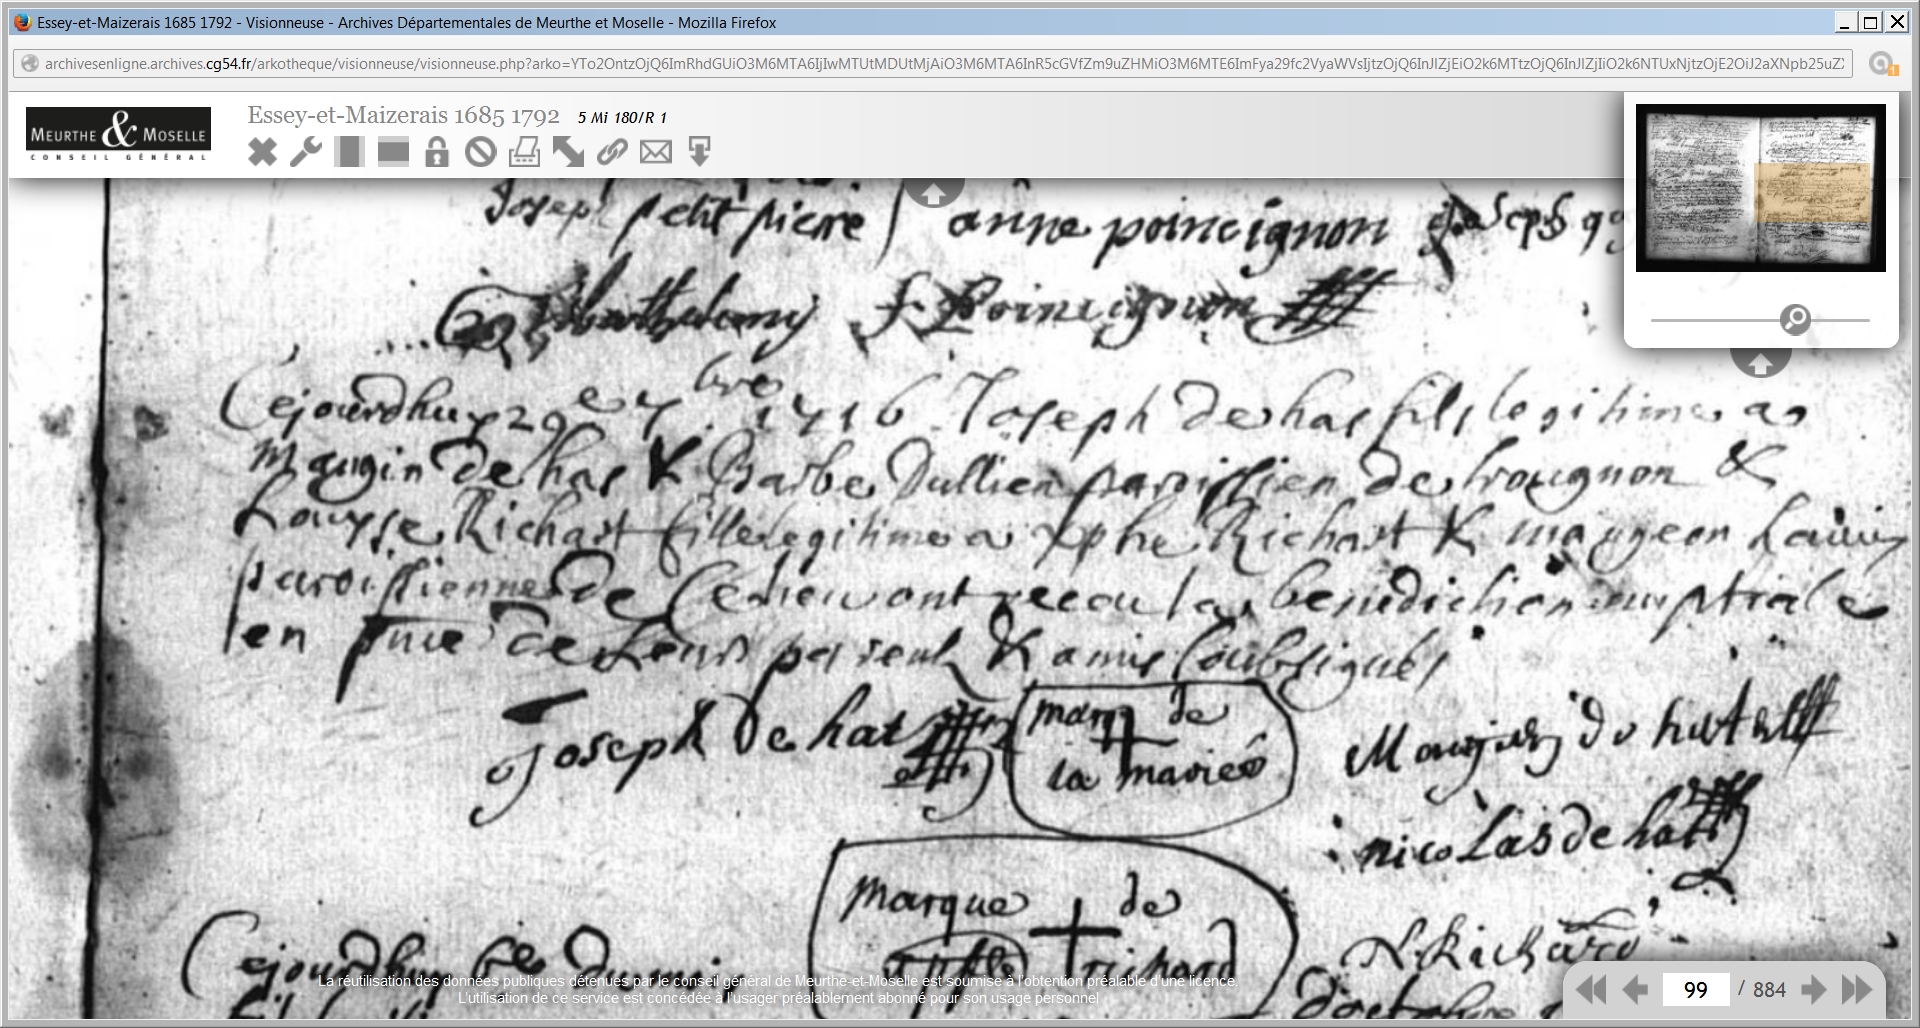 Essey-et-Maizerais 1685 1792 - Visionneuse - Archives Départementales de Meurthe et Moselle - Mozilla Firefox
archivesenligne.archives.cg54.fr/arkotheque/visionneuse/visionneuse.php?arko=
MEURTHE & MOSELLE
CONSEIL GÉNÉRAL
Essey-et-Maizerais 1685 1792 5 Mi 180/R 1
Joseph petit pierre anne poincignon Joseph
Barthelemy F Poincignon
Cejourdhuy 29e 7bre 1716 Joseph De hat fils legitime a
Maugin De hat & Barbe Dullien paroissien De trougnon &
Louysse Richart fille legitime a Xphe Richart & maugeon
paroissienne De Ce lieu ont receu la benediction nuptiale
en De Leurs parent & amis soubsignés
Joseph De hat
marq de
la mariée
Maugin De hat
nicolas de hat
marque de
richard
N Richard
Cejourdhuy
La réutilisation des données publiques détenues par le conseil général de Meurthe-et-Moselle est soumise à l'obtention préalable d'une licence.
L'utilisation de ce service est concédée à l'usager préalablement abonné pour son usage personnel
99 / 884